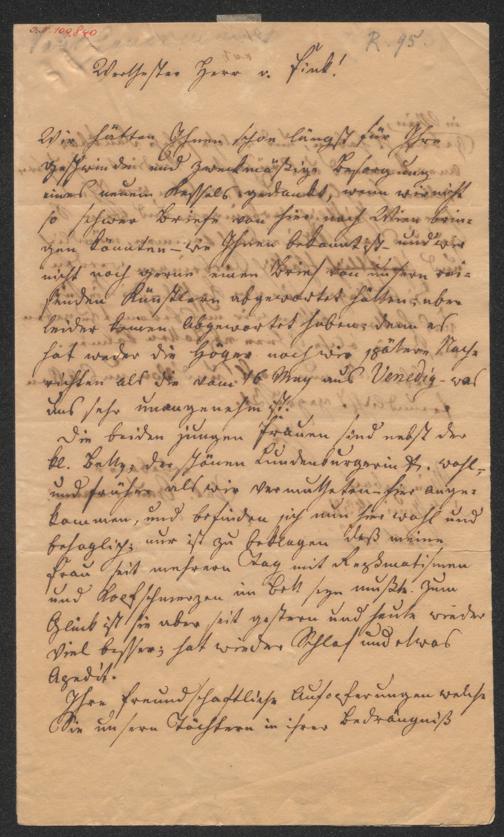 R. 95.
Werthester Herr v. Fink!
Wir hätten Ihnen schon längst für Ihre
geschwinde und zweckmäßige Besorgung
eines neuen Kessels gedankt, wenn wir nicht
so schwer Briefe von hier nach Wien brin-
gen könnten – wie Ihnen bekannt ist – und wir
nicht noch gerne einen Brief von unsern rei-
senden Künstlern abgewartet hätten; aber
leider keinen abgewartet haben; denn es
hat weder die Höger noch wir spätere Nach-
richten als die vom 16 May aus Venedig – was
uns sehr unangenehm ist.
Die beiden jungen Frauen sind nebst der
kl. Betty, der schönen Lundenburgerin wohl-
und früher als wir vermutheten hier ange-
kommen, und befinden sich nun hier wohl und
behaglich; nur ist zu beklagen daß meine
Frau seit mehrern Tag mit Rheumatismen
und Kopfschmerzen im Bett seyn mußte. Zum
Glück ist sie aber seit gestern und heute wieder
viel besser; hat wieder Schlaf und etwas
Apedit.
Ihre freundschaftliche Aufopferungen welche
Sie unsern Töchtern in ihrer Bedrängniß